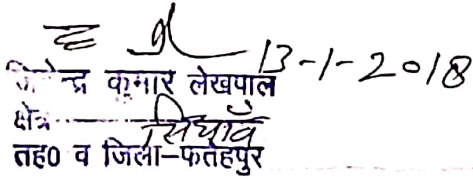 13-1-2018
जितेन्द्र कुमार लेखपाल
क्षेत्र सिधाँव
तह० व जिला-फतेहपुर